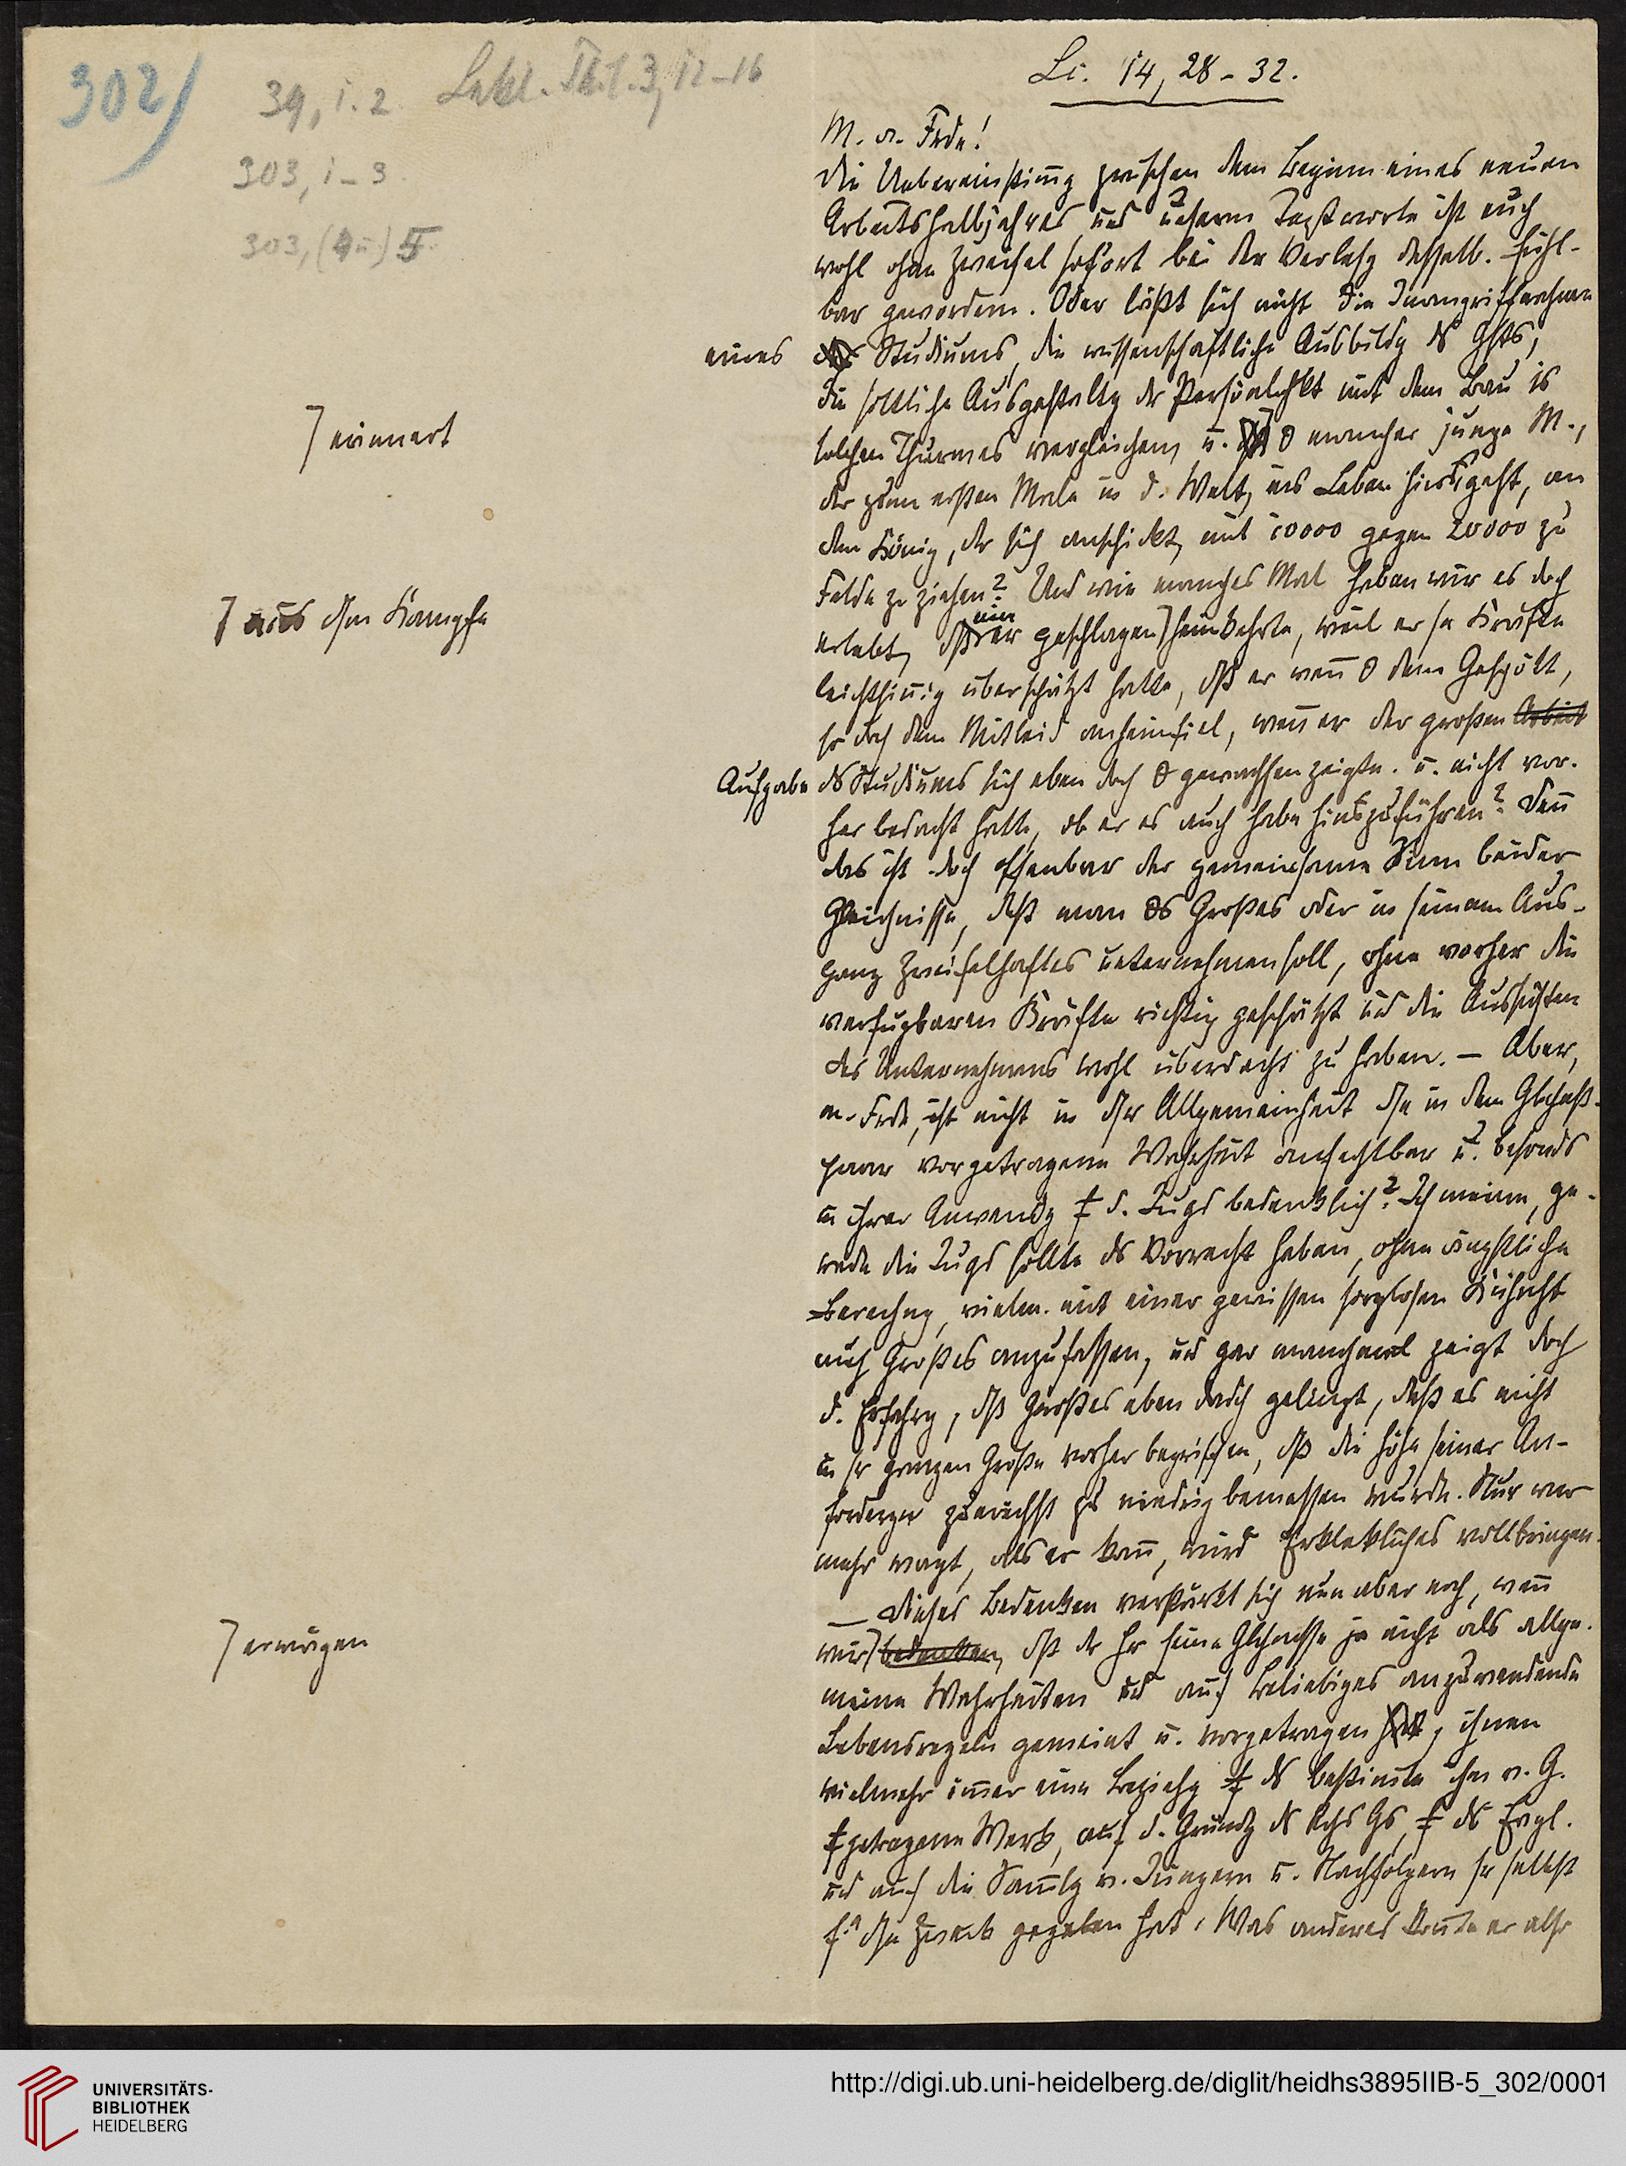 302)
39, 1. 2
303, 1-3.
303, (4 u) 5.
3, 12-16
Lc. 14, 28-32.
M. a. Frde!
Die Uebereinstimg zwischen dem Beginn eines neuen
Arbeitshalbjahres und unserm Textworte ist euch
wohl ohne Zweifel sofort bei der Verlesg desselb. fühl-
bar geworden. Oder läßt sich nicht die Inangriffnahme
eines Studiums, die wissenschaftliche Ausbildg ds Gsts,
die sittliche Ausgestaltg der Persönlichkt mit dem Bau
solchen Thurmes vergleichen, u. mancher junge M.,
] erinnert
der zum ersten Male in d. Welt, ins Leben hinausgeht, an
den König, der sich anschickt, mit 10000 gegen 20000 zu
Felde zu ziehen? Und wie manches Mal haben wir es doch
erlebt, dß er geschlagen] heimkehrte, weil er se Kräfte
] aus dem Kampfe
leichtsinnig überschätzt hatte, dß er wenn dem Gespött,
so doch dem Mitleid anheimfiel, wenn er der großen Arbeit
Aufgabe ds Studiums sich eben doch gewachsen zeigte. u. nicht vor-
her bedacht hatte, ob er es auch habe hinauszuführen? Denn
das ist doch offenbar der gemeinsame Sinn beider
Gleichnisse, daß man Großes oder in seinem Aus-
gang Zweifelhaftes unternehmen soll, ohne vorher die
verfügbaren Kräfte richtig geschätzt und die Aussichten
des Unternehmens wohl überdacht zu haben. – Aber,
m. Frde, ist nicht in dsr Allgemeinheit die in dem Glchnß-
paar vorgetragene Wahrheit anfechtbar u. besonds
in ihrer Anwendg d. Jugd bedenklich? Ich meine, ge-
rade die Jugd sollte ds Vorrecht haben, ohne ängstliche
Berechng, vielm. mit einer gewissen sorglosen Kühnht
auch Großes anzufassen, und gar manchmal zeigt doch
d. Erfahrg, dß Großes eben dadch gelingt, daß es nicht
in sr ganzen Größe vorher begriffen, dß die Höhe seiner An-
forderger zunächst zu niedrig bemessen wurde. Nur wer
mehr wagt, als er kann, wird Erkleckliches vollbringen.
– Dieses Bedenken verstärkt sich nun aber noch, wenn
wir] bedenken, dß der Hr seine Glchnisse ja nicht als allge-
] erwägen
meine Wahrheiten und auf Beliebiges anzuwendende
Lebensregeln gemeint u. vorgetragen hat, ihnen
vielmehr immer eine Beziehg ds bestimmte ihm v. G.
getragene Werk, auf d. Gründg ds Rchs Gs, ds Evgl.
und auf die Sammlg v. Jüngern u. Nachfolgern sr selbst
f. dsn Zweck gegeben hat. Was anderes konnte er also
UNIVERSITÄTS-
BIBLIOTHEK
HEIDELBERG
http://digi.ub.uni-heidelberg.de/diglit/heidhs3895IIB-5_302/0001